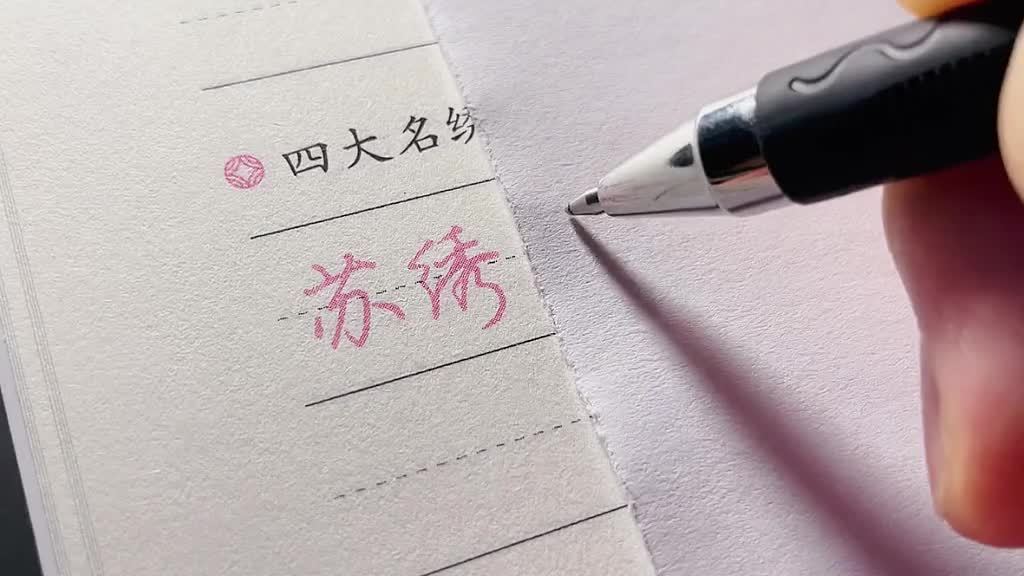 四大名
苏绣